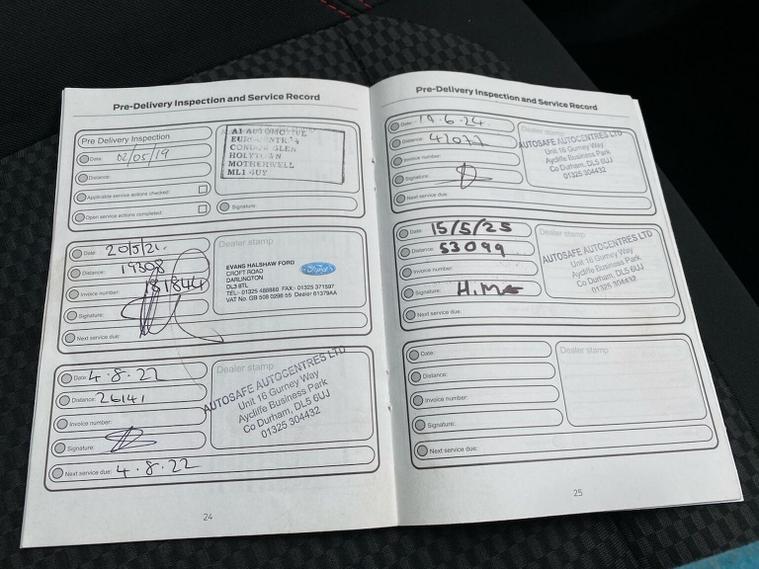 Pre-Delivery Inspection and Service Record
Pre Delivery Inspection
Date: 02/05/19
Distance:
Applicable service actions checked:
Open service actions completed:
A1 AUTOMOTIVE
HOLYTOWN
MOTHERWELL
ML1 4UY
Signature:
Date: 20/5/21.
Distance: 19508
Invoice number: 181844
Signature:
Next service due:
Dealer stamp
Ford
EVANS HALSHAW FORD
CROFT ROAD
DARLINGTON
DL3 8TL
TEL:- 01325 488888 FAX:- 01325 371597
VAT No. GB 508 0298 55 Dealer 61379AA
Date: 4.8.22
Distance: 26141
Invoice number:
Signature:
Next service due: 4.8.22
Dealer stamp
AUTOSAFE AUTOCENTRES LTD
Unit 16 Gurney Way
Aycliffe Business Park
Co Durham, DL5 6UJ
01325 304432
24
Pre-Delivery Inspection and Service Record
Date: 19.6.24
Distance: 42077
Invoice number:
Signature:
Next service due:
Dealer stamp
AUTOSAFE AUTOCENTRES LTD
Unit 16 Gurney Way
Aycliffe Business Park
Co Durham, DL5 6UJ
01325 304432
Date: 15/5/25
Distance: 53099
Invoice number:
Signature:
Next service due:
Dealer stamp
AUTOSAFE AUTOCENTRES LTD
Unit 16 Gurney Way
Aycliffe Business Park
Co Durham, DL5 6UJ
01325 304432
Date:
Distance:
Invoice number:
Signature:
Next service due:
Dealer stamp
25